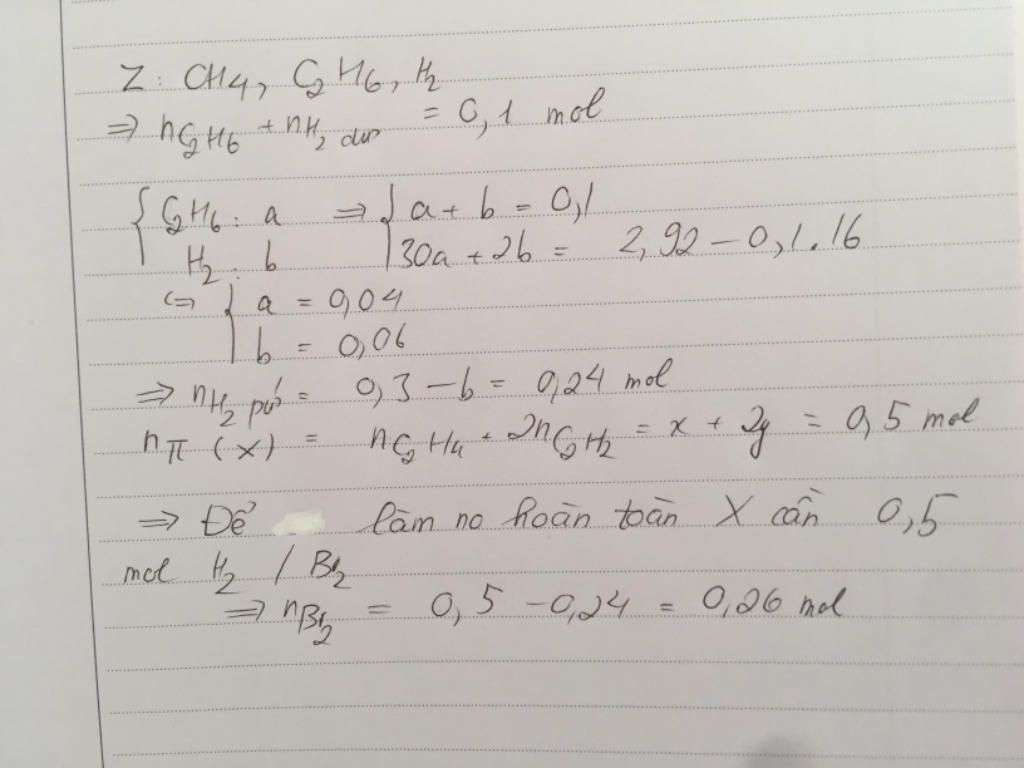 Z: CH4, C2H6, H2
⇒ nC2H6 + nH2 dư = 0,1 mol
{ C2H6: a ⇒ { a + b = 0,1
H2: b 30a + 2b = 2,92 – 0,1.16
⇔ { a = 0,04
b = 0,06
⇒ nH2 pứ = 0,3 – b = 0,24 mol
nπ (X) = nC2H4 + 2nC2H2 = x + 2y = 0,5 mol
⇒ Để làm no hoàn toàn X cần 0,5
mol H2 / Br2
⇒ nBr2 = 0,5 – 0,24 = 0,26 mol